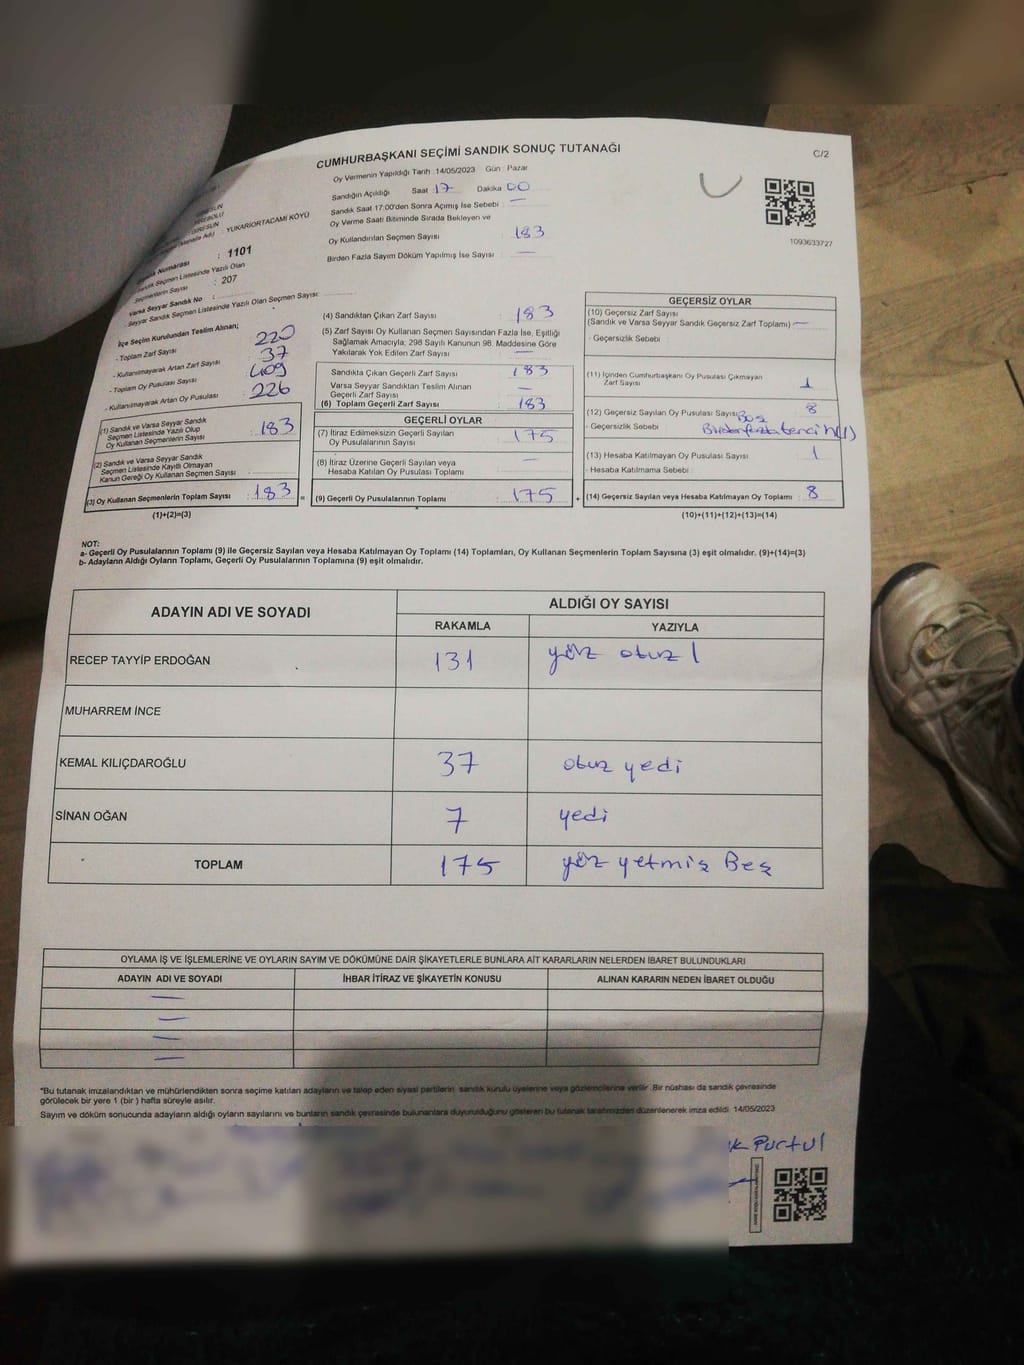 CUMHURBAŞKANI SEÇİMİ SANDIK SONUÇ TUTANAĞI
C/2
Oy Vermenin Yapıldığı Tarih : 14/05/2023 Gün : Pazar
Sandığın Açıldığı Saat : 17 Dakika : 00
Sandık Saat 17:00'den Sonra Açımış İse Sebebi : —
Oy Verme Saati Bitiminde Sırada Bekleyen ve
Oy Kullandırılan Seçmen Sayısı : 183
Birden Fazla Sayım Döküm Yapılmış İse Sayısı : —
1093633727
GİRESUN
YUKARIORTACAMİ KÖYÜ
Numarası : 1101
Sandık Seçmen Listesinde Yazılı Olan
Seçmenlerin Sayısı : 207
Varsa Seyyar Sandık No :
Seyyar Sandık Seçmen Listesinde Yazılı Olan Seçmen Sayısı:
İlçe Seçim Kurulundan Teslim Alınan;
- Toplam Zarf Sayısı 220
- Kullanılmayarak Artan Zarf Sayısı 37
- Toplam Oy Pusulası Sayısı 409
- Kullanılmayarak Artan Oy Pusulası 226
(1) Sandık ve Varsa Seyyar Sandık
Seçmen Listesinde Yazılı Olup
Oy Kullanan Seçmenlerin Sayısı : 183
(2) Sandık ve Varsa Seyyar Sandık
Seçmen Listesinde Kayıtlı Olmayan
Kanun Gereği Oy Kullanan Seçmen Sayısı :
(3) Oy Kullanan Seçmenlerin Toplam Sayısı : 183 =
(1)+(2)=(3)
(4) Sandıktan Çıkan Zarf Sayısı : 183
(5) Zarf Sayısı Oy Kullanan Seçmen Sayısından Fazla İse, Eşitliği
Sağlamak Amacıyla; 298 Sayılı Kanunun 98. Maddesine Göre
Yakılarak Yok Edilen Zarf Sayısı : —
Sandıkta Çıkan Geçerli Zarf Sayısı : 183
Varsa Seyyar Sandıktan Teslim Alınan
Geçerli Zarf Sayısı : —
(6) Toplam Geçerli Zarf Sayısı : 183
GEÇERLİ OYLAR
(7) İtiraz Edilmeksizin Geçerli Sayılan
Oy Pusulalarının Sayısı : 175
(8) İtiraz Üzerine Geçerli Sayılan veya
Hesaba Katılan Oy Pusulası Toplamı : —
(9) Geçerli Oy Pusulalarının Toplamı : 175 +
GEÇERSİZ OYLAR
(10) Geçersiz Zarf Sayısı
(Sandık ve Varsa Seyyar Sandık Geçersiz Zarf Toplamı) : —
- Geçersizlik Sebebi :
(11) İçinden Cumhurbaşkanı Oy Pusulası Çıkmayan
Zarf Sayısı : 1
(12) Geçersiz Sayılan Oy Pusulası Sayısı : 8
- Geçersizlik Sebebi : Boş
(13) Hesaba Katılmayan Oy Pusulası Sayısı : 1
- Hesaba Katılmama Sebebi :
(14) Geçersiz Sayılan veya Hesaba Katılmayan Oy Toplamı : 8
(10)+(11)+(12)+(13)=(14)
NOT:
a- Geçerli Oy Pusulalarının Toplamı (9) ile Geçersiz Sayılan veya Hesaba Katılmayan Oy Toplamı (14) Toplamları, Oy Kullanan Seçmenlerin Toplam Sayısına (3) eşit olmalıdır. (9)+(14)=(3)
b- Adayların Aldığı Oyların Toplamı, Geçerli Oy Pusulalarının Toplamına (9) eşit olmalıdır.
ADAYIN ADI VE SOYADI ALDIĞI OY SAYISI
RAKAMLA YAZIYLA
RECEP TAYYİP ERDOĞAN 131 yüz otuz 1
MUHARREM İNCE
KEMAL KILIÇDAROĞLU 37 otuz yedi
SİNAN OĞAN 7 yedi
TOPLAM 175 yüz yetmiş Beş
OYLAMA İŞ VE İŞLEMLERİNE VE OYLARIN SAYIM VE DÖKÜMÜNE DAİR ŞİKAYETLERLE BUNLARA AİT KARARLARIN NELERDEN İBARET BULUNDUKLARI
ADAYIN ADI VE SOYADI İHBAR İTİRAZ VE ŞİKAYETİN KONUSU ALINAN KARARIN NEDEN İBARET OLDUĞU
—
—
—
—
*Bu tutanak imzalandıktan ve mühürlendikten sonra seçime katılan adayların ve talep eden siyasi partilerin sandık kurulu üyelerine veya gözlemcilerine verilir. Bir nüshası da sandık çevresinde
görülecek bir yere 1 (bir ) hafta süreyle asılır.
Sayım ve döküm sonucunda adayların aldığı oyların sayılarını ve bunların sandık çevresinde bulunanlara duyurulduğunu gösteren bu tutanak tarafımızdan düzenlenerek imza edildi. 14/05/2023